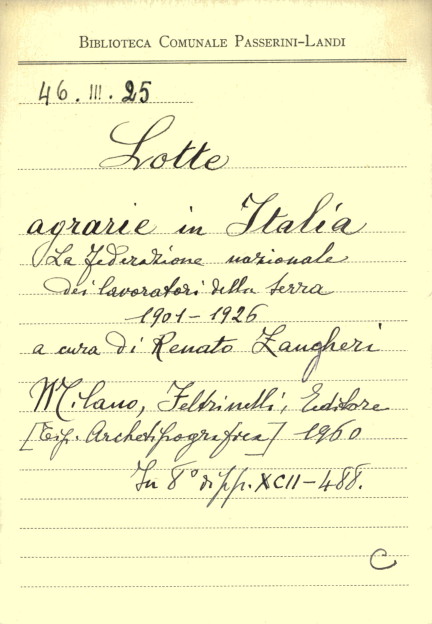 BIBLIOTECA COMUNALE PASSERINI-LANDI
46. III. 25
Lotte
agrarie in Italia
La Federazione nazionale
dei lavoratori della terra
1901-1926
a cura di Renato Zangheri
Milano, Feltrinelli, Editore
[Tip. Archetipografica] 1960
In 8° di pp. XCII-488.
C